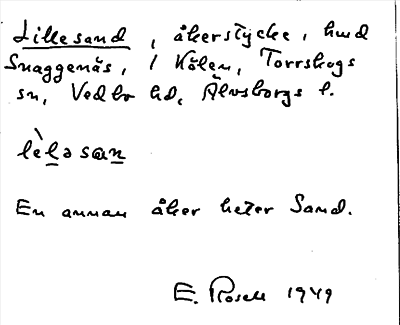 Lillesand, åkerstycke, hmd
Snaggenäs, 1 Kölen, Torrskogs
sn, Vedbo hd, Älvsborgs l.
lèləsan
En annan åker heter Sand.
E. Rosell 1949